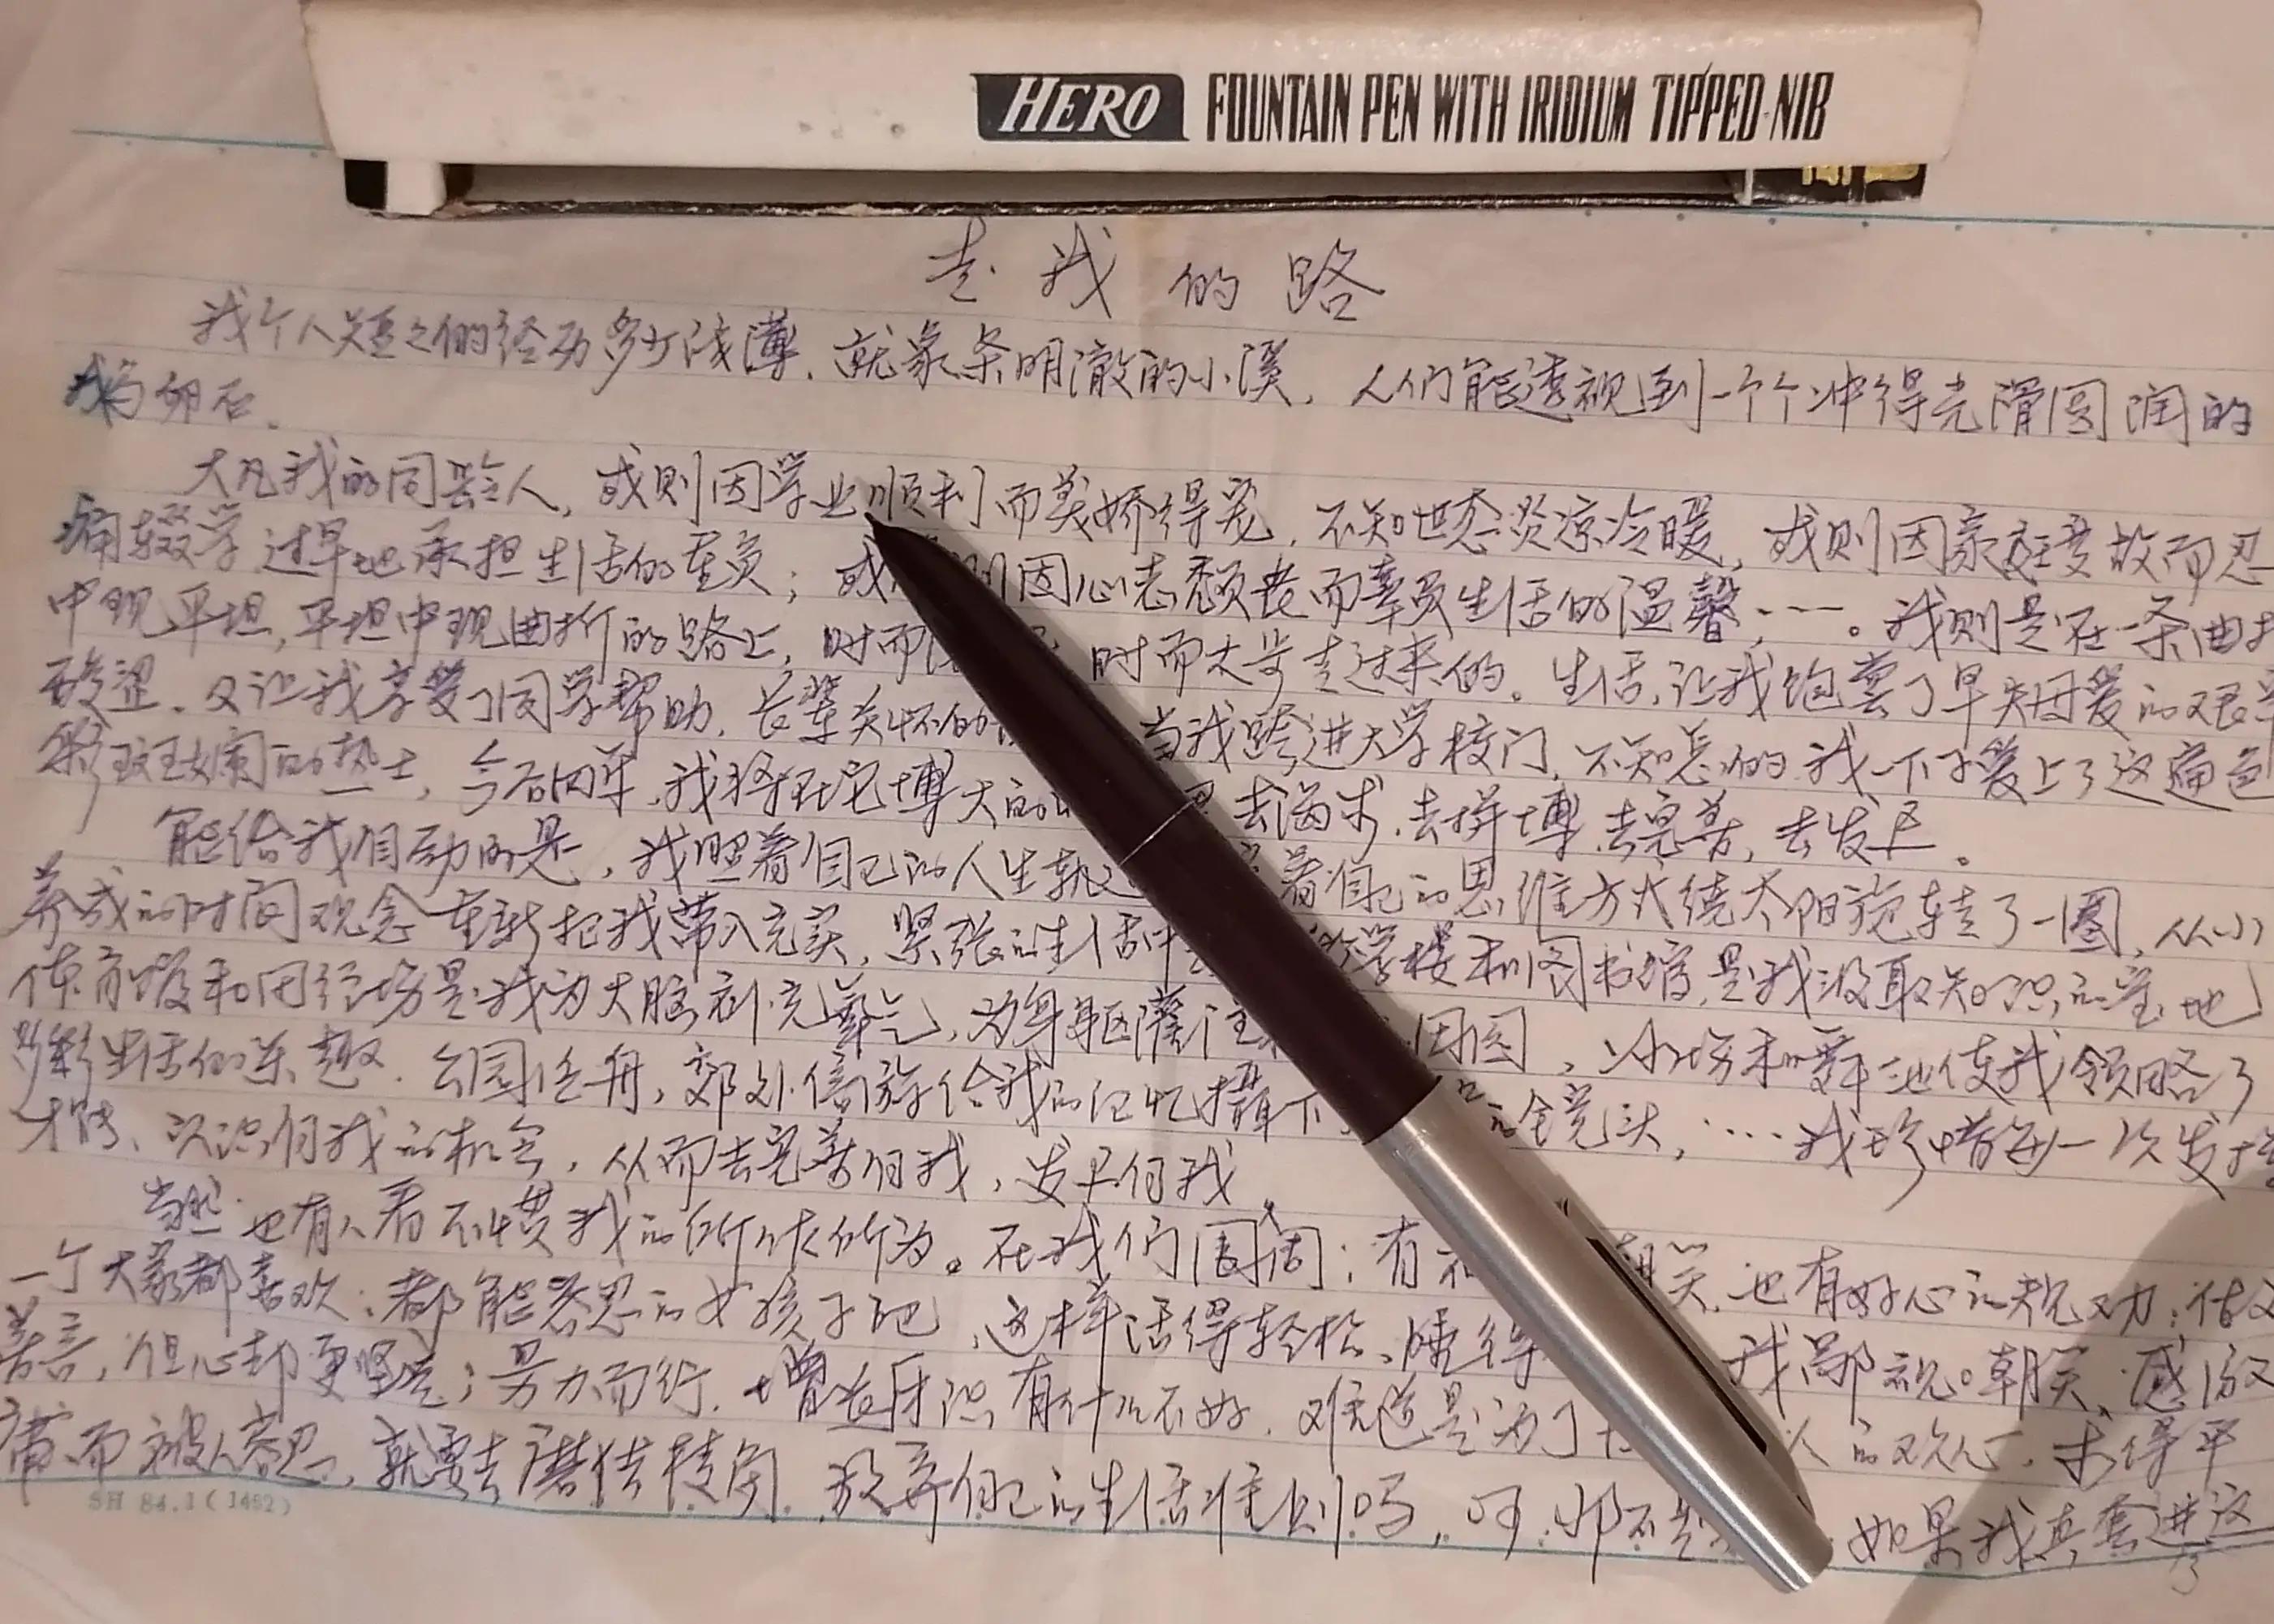 HERO FOUNTAIN PEN WITH IRIDIUM TIPPED NIB
走我的路
我个人短短的经历多少浅薄，就象条明澈的小溪，人们能透视到一个个冲得光滑圆润的
卵石。
大凡我的同龄人，或则因学业顺利而美娇得宠，不知世态炎凉冷暖，或则因家庭变故而忍
痛辍学过早地承担生活的重负；或则因心志颓丧而辜负生活的温馨；……。我则是在一条曲折
中现平坦，平坦中现曲折的路上，时而 时而大步走过来的。生活，让我饱尝了早失母爱的艰辛
酸涩，又让我享受了同学帮助、长辈关怀的 当我跨进大学校门，不知怎的我一下子爱上了这遍色
彩斑斓的热土，今后四年，我将在它博大的 去渴求，去拼博，去完善，去发展。
能给我自励的是，我照着自己的人生轨 着自己的思维方式绕太阳旋转了一圈，从小
养成的时间观念重新把我带入充实，紧张的生活中 学楼和图书馆是我汲取知识的宝地
体育场和田径场是我为大脑补充氧气，为身躯灌注 田园，冰场和舞池使我领略了
生活的乐趣，公园泛舟，郊外信游给我的记忆摄下 的镜头，……我珍惜每一次发
才能、认识自我的机会，从而去完善自我，发展自我。
当然也有人看不惯我的所作所为。在我们周围：有 朝笑，也有好心的规劝：做
一个大家都喜欢，都能容忍的女孩子吧，这样活得轻松、睡得 我鄙视朝笑，感激
善言，但心却更坚定；努力而行，增长见识有什么不好，难道是为了 人的欢心，求得平
庸而被人容忍，就要去磨去棱角，放弃自己的生活准则吗，呵，那不 如果我真套进了这
SH 84.1 (1492)